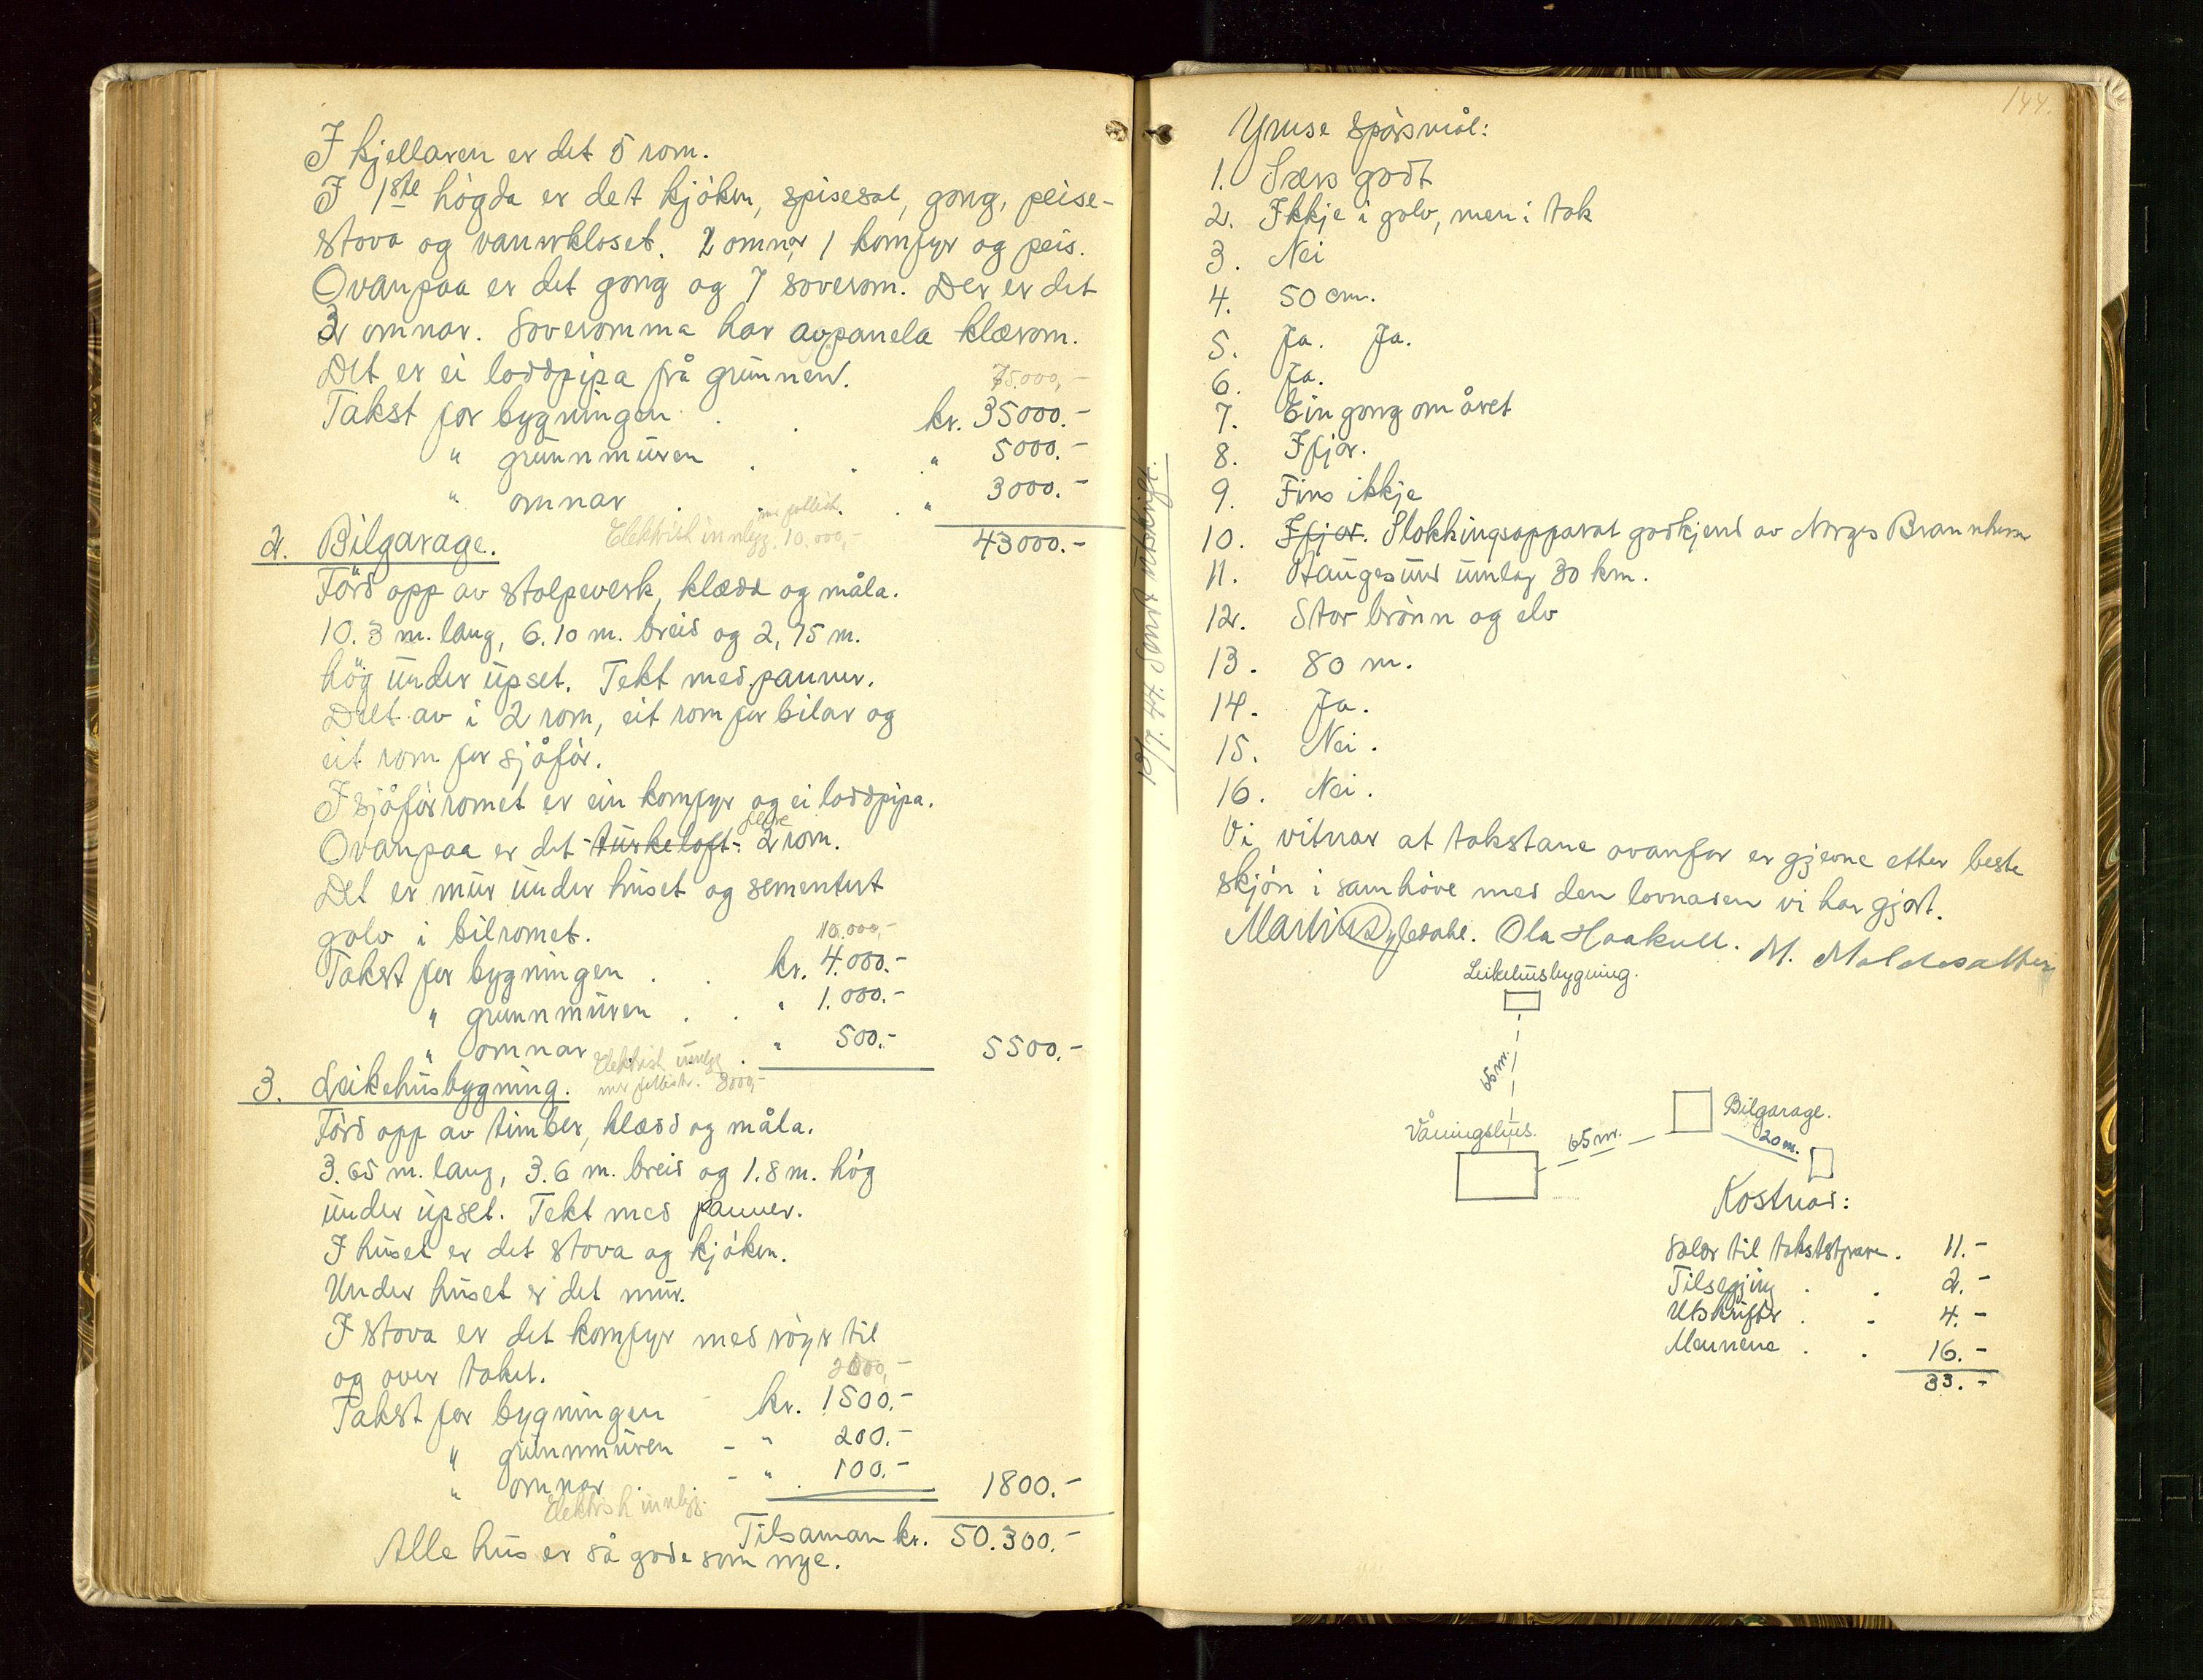 I kjellaren er det 5 rom.
I 1ste högda er det kjöken, spisesal, gong, peise-
stova og vannkloset. 2 omnar, 1 komfyr og peis.
Ovanpaa er det gong og 7 soverom. Der er det
3 omnar. Soveromma har avpanela klærom.
Det er ei loddpipa frå grunnen.
75.000,-
Takst for bygningen . . kr. 35000.-
" grunnmuren . . " 5000.-
" omnar . . " 3000.-
Elektrisk innlegg. 10.000,-
2. Bilgarage. 43000.-
Förd opp av stolpeverk, klædd og måla.
10.3 m. lang, 6.10 m. breid og 2,75 m.
hög under upset. Tekt med panner.
Delt av i 2 rom, eit rom for bilar og
eit rom for sjåför.
I sjåförromet er ein komfyr og ei loddpipa.
Ovanpaa er det turkeloft. 2 rom.
Det er mur under huset og sementert
golv i bilromet.
10.000,-
Takst for bygningen . . kr. 4.000.-
" grunnmuren . . " 1.000.-
" omnar . " 500.- 5500.-
Elektrisk innlegg
3000,-
3. Leikehusbygning.
Förd opp av timber, klædd og måla.
3.65 m. lang, 3.6 m. breid og 1.8 m. hög
under upset. Tekt med panner.
I huset er det stova og kjöken.
Under huset er det mur.
I stova er det komfyr med röyr til
og over taket.
2000,-
Takst for bygningen - kr. 1500.-
" grunnmuren - " 200.-
" omnar . - " 100.- 1800.-
Elektrisk innlegg.
Tilsaman kr. 50.300.-
Alle hus er så gode som nye.
144.
Ymse spörsmål:
1. Særs godt
2. Ikkje i golv, men i tak
3. Nei
4. 50 cm.
5. Ja. Ja.
6. Ja.
7. Ein gong om året
8. Ifjor.
9. Fins ikkje
10. Ifjor. Slokkingsapparat godkjend av Norges Brannkasse
11. Haugesund umlag 30 km.
12. Stor brönn og elv
13. 80 m.
14. Ja.
15. Nei.
16. Nei.
19/2 44 Sendt utskrift.
Vi vitnar at takstane ovanfor er gjevne etter beste
skjön i samhöve med den lovnaden vi har gjort.
Martin Ola Haakull. M.
Leikehusbygning.
65 m.
Våningshus.
65 m.
Bilgarage.
20 m.
Kostnad:
Salær til takststyrar . 11.-
Tilsegjing . . 2.-
Utskrifter . . 4.-
Mennene . . 16.-
33.-